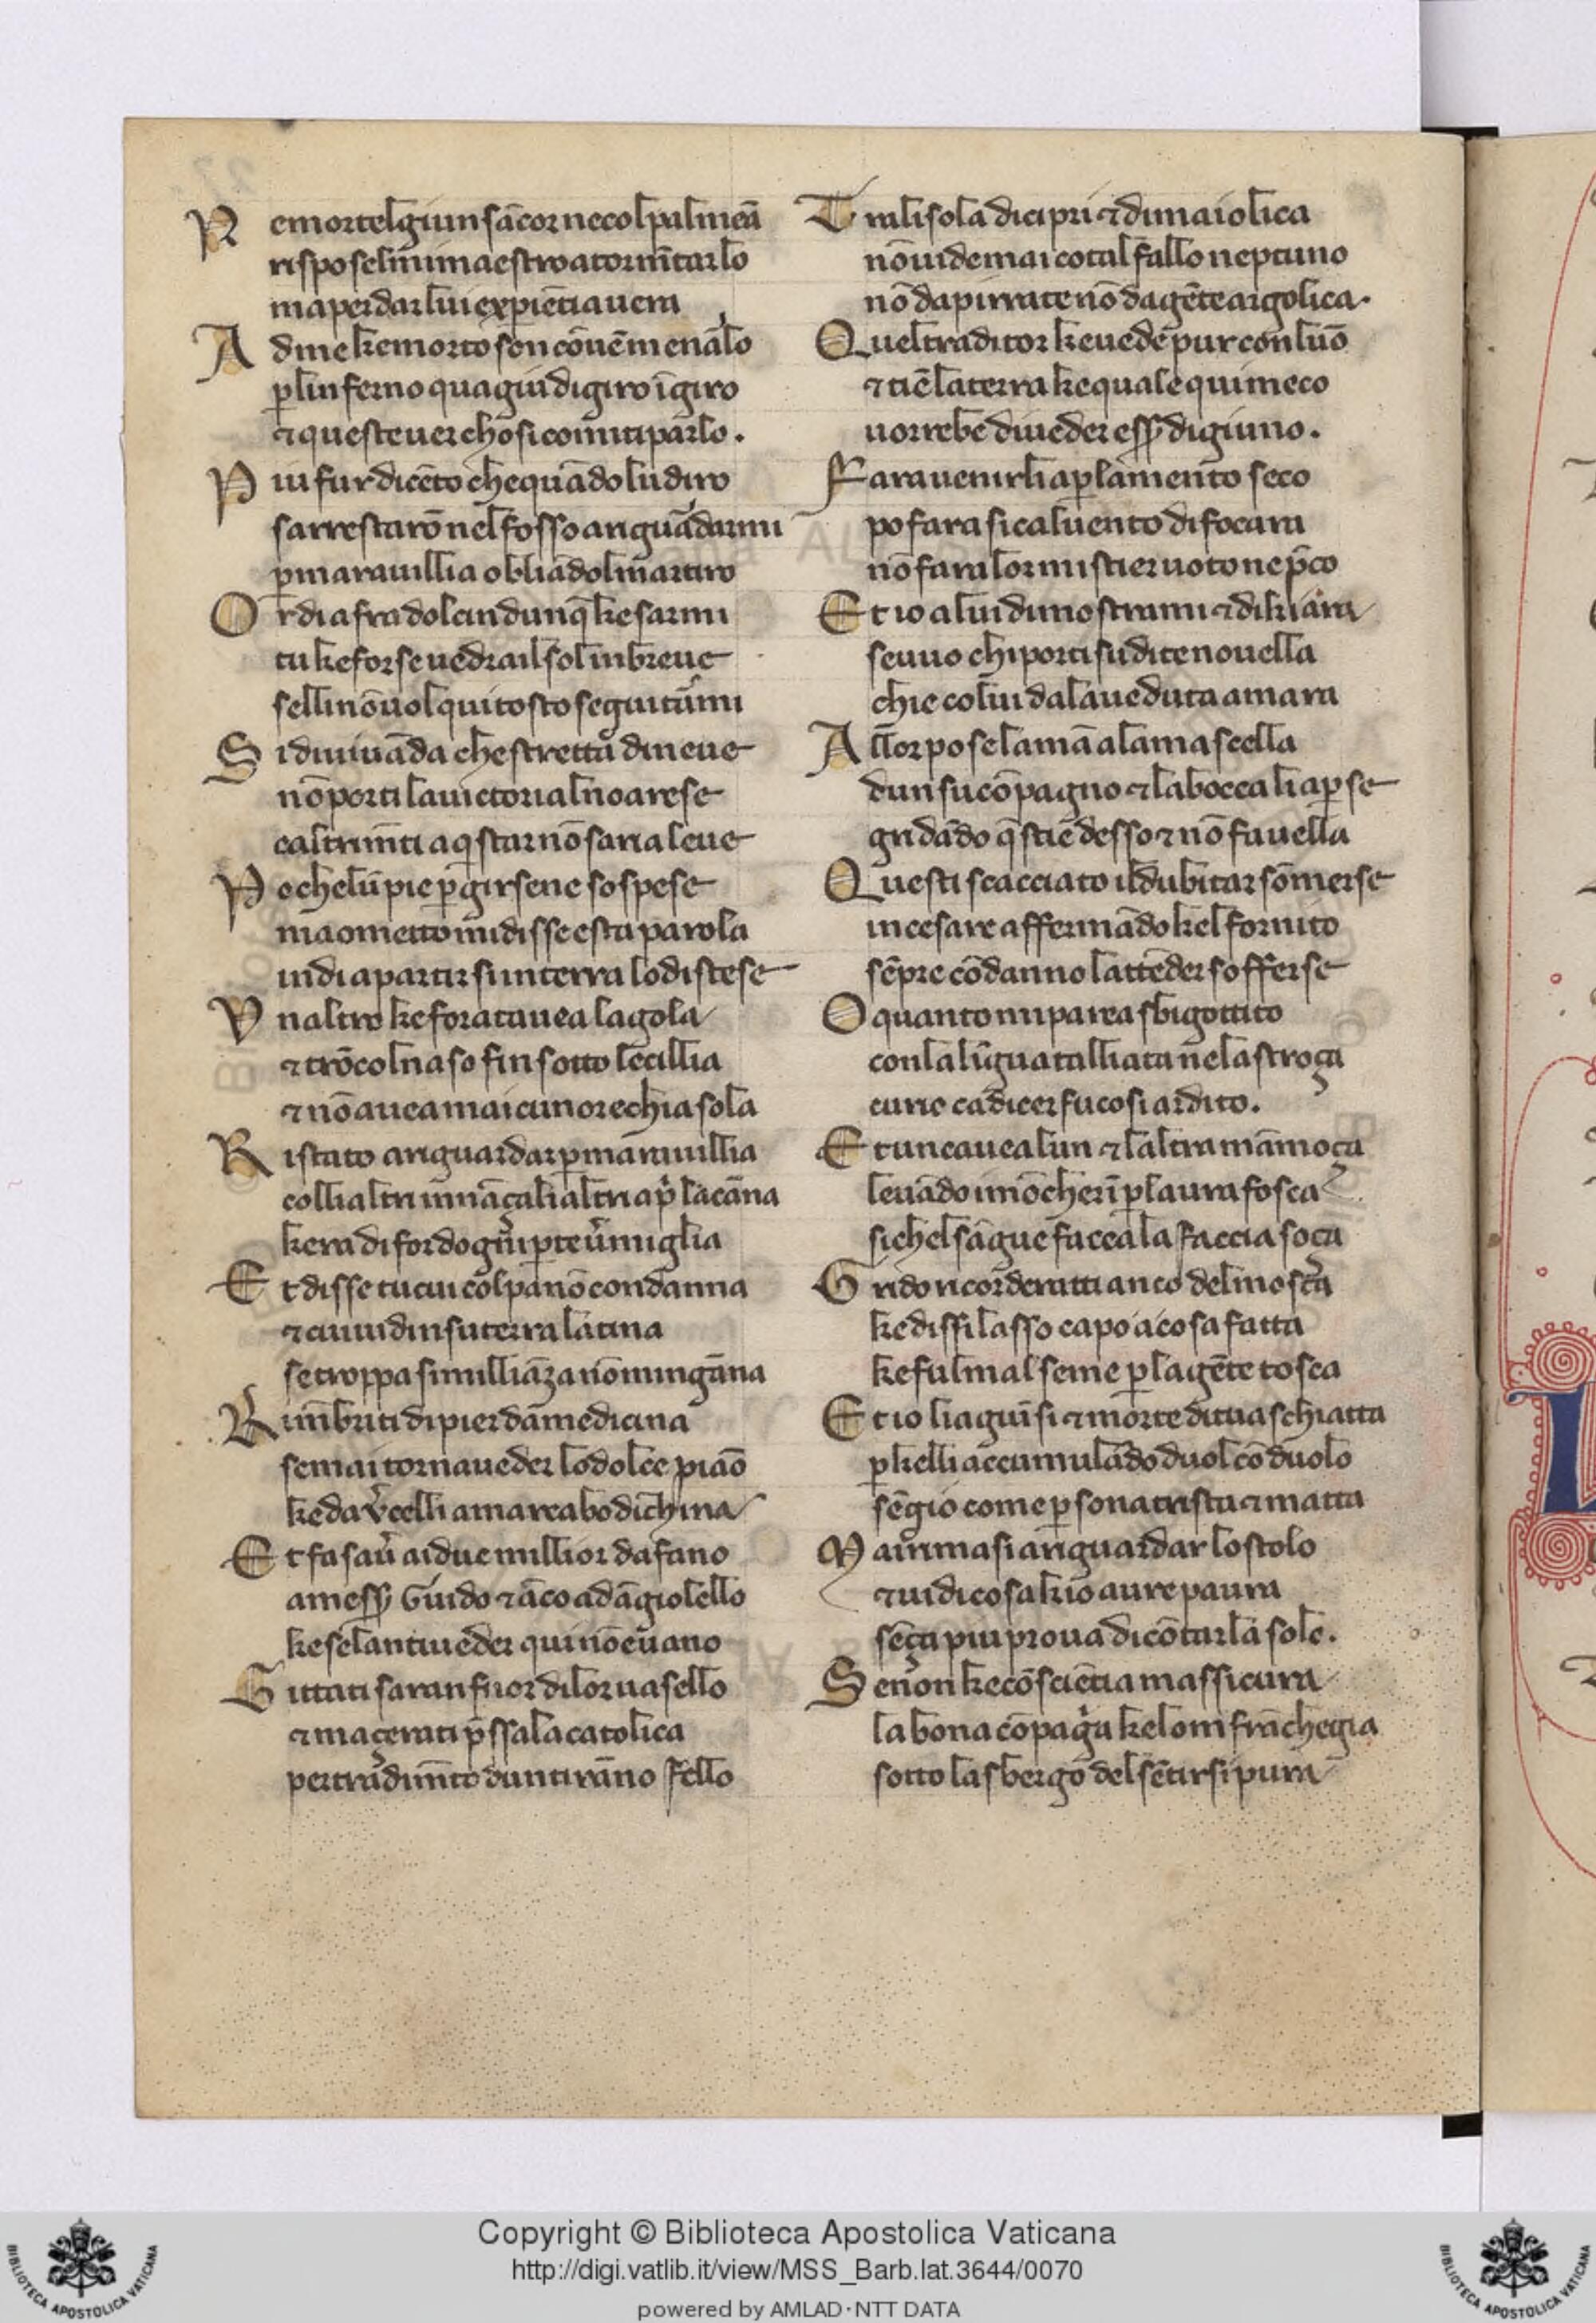 N e mortelgiunsācor necolpalmenā
rispose lmimaestro a tormētarlo
ma per dar lui expiētia uera
A d me ke morto son cōuē menālo
p linferno qua giu di giro ī giro
⁊ queste uer chosi comiti parlo.
P iu fur di cēto che quādo ludiro
sarrestarō nel fosso a riguādarmi
p marauillia obliādo lmartiro
O r di a fra dolcin dunq̄ ke sarmi
tu ke forse uedrai lsol in breue
sellinō uol qui tosto seguitarmi
S i di uiuāda che stretta di neue
nō porti la uictoria lnoarese
caltrimēti a qstar nō saria leue
P o che lū pie p girsene sospese
maometto mi disse esta parola
indi a partirsi in terra lo distese
V n altro ke forata uea la gola
⁊ trōco lnaso fin sotto le cillia
⁊ nō auea mai cun orechia sola
R istato a riguardar p marauillia
colli altri innāçi li altri apī la cāna
kera di for dognī pte ūmiglia
E t disse tu cui colpa nō condanna
⁊ cui uidi in su terra latina
se troppa simillianza nō mingāna
R imēbriti di pier da medicina
se mai torna ueder lo dolce piāo
ke da ūcelli a marcabo dichina
E t fa sau ai due millior da fano
a mess Guido ⁊ āco ad āgiolello
ke se lantiueder qui nō e uano
G ittati saran fuor di lor uasello
⁊ maçerati pssa la catolica
per tradimēto dun tirāno fello
T ra lisola di cipri ⁊ di maiolica
nō uide mai co tal fallo neptuno
nō da pirrate nō da gēte argolica.
Q uel traditor ke uede pur con luō
⁊ tiē la terra ke quale qui meco
uorrebe di ueder ess digiuno.
F ara uenirli a plamento seco
po fara si cal uento di focara
nō fara lor mistier uoto ne pco
E t io a lui dimostrami ⁊ dikiara
se uuo chi porti su di te nouella
chi e colui da la ueduta amara
A llor pose la mā a la mascella
dun su cōpagno ⁊ la bocca li apse
gridādo qsti ē desso ⁊ nō fauella
Q uesti scacciato il dubitar sōmerse
in cesare affermādo kel fornito
sēpre cō danno lattēder sofferse
O quanto mi parea sbigottito
con la līgua talliata ne la stroça
curio ca dicer fu cosi ardito.
E t un cauea lun ⁊ laltra mā moça
leuādo i mōcherī p laura fosca
si chel sāgue facea la faccia soça
G rido ricorderatti anco del mosca
ke dissi lasso capo a cosa fatta
ke ful mal seme p la gēte tosca
E t io li aguīsi ⁊ morte di tua schiatta
p kelli accumulādo duol cō duolo
sēgio come psona trista ⁊ matta
M a rimasi a riguardar lo stolo
⁊ uidi cosa kio aure paura
sēça piu proua di cōtarla sole.
S e non ke cōsciētia massicura
la bona cōpagīa ke lom frāchegia
sotto lasbergo del sētirsi pura
Copyright © Biblioteca Apostolica Vaticana
http://digi.vatlib.it/view/MSS_Barb.lat.3644/0070
powered by AMLAD·NTT DATA